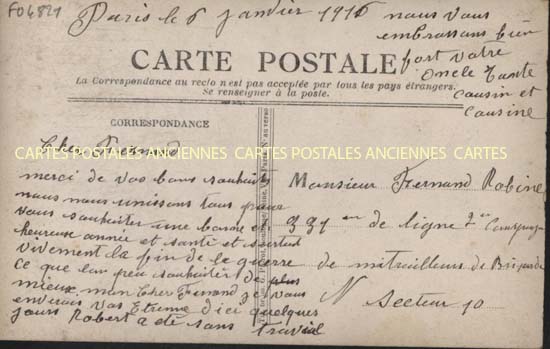 F04821
Paris le 6 janvier 1916
nous vous
embrassons bien
fort votre
Oncle Tante
Cousin et
Cousine
CARTE POSTALE
La Correspondance au recto n'est pas acceptée par tous les pays étrangers.
Se renseigner à la poste.
CORRESPONDANCE
Cher Fernand
CARTES POSTALES ANCIENNES CARTES POSTALES ANCIENNES CARTES
merci de vos bons souhaits
nous nous unissons tous pour
vous souhaiter une bonne et
heureuse année et santé et surtout
vivement la fin de la guerre
ce que l'on peu souhaiter de plus
mieux mon Cher Fernand je vous
enverais vos Etrenne d'ici quelques
jours Robert a été sans travail
Monsieur Fernand Robine
de ligne 2em Compagnie
de mitrailleurs de Brigade
Secteur 10